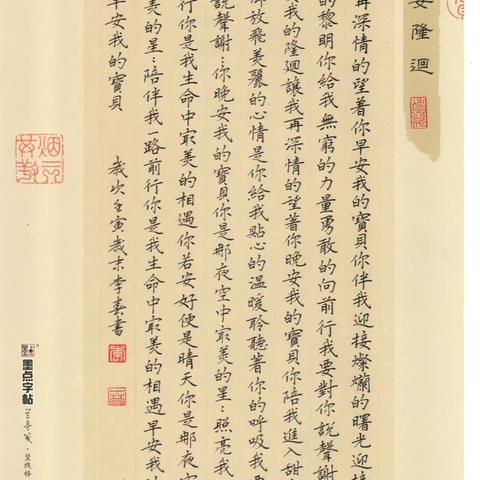 安隆迴
再深情的望著你早安我的寶貝你伴我迎接燦爛的曙光迎接
的黎明你給我無窮的力量勇敢的向前行我要對你說聲謝
我的隆迴讓我再深情的望著你晚安我的寶貝你陪我進入甜
放飛美麗的心情是你給我點心的溫暖聆聽著你的呼吸我
說聲謝:你晚安我的寶貝你是那夜空中最美的星:照亮我
行你是我生命中最美的相遇你若安好便是晴天你是那夜
美的星:陪伴我一路前行你是我生命中最美的相遇早安我
早安我的寶貝
歲次壬寅歲末李春書
墨点字帖
竖线格